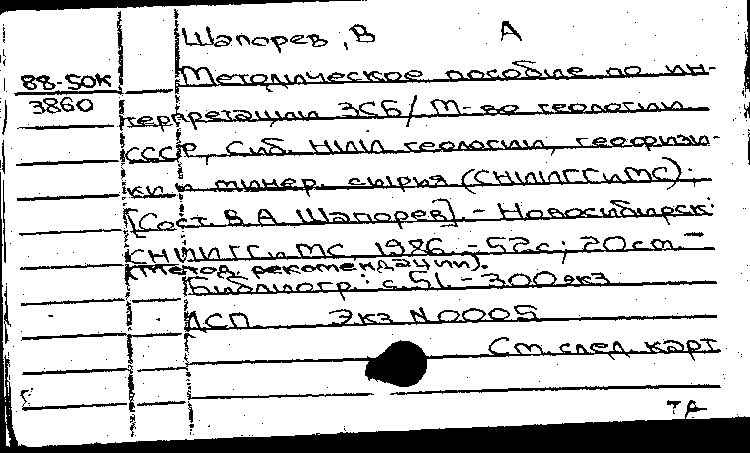 Шапорев, В А
88-50К
Методическое пособие по ин-
3860
терпретации ЗСБ/ М-во геологии
СССР, Сиб. НИИ геологии, геофизи-
ки и минер. сырья (СНИИГГиМС);
[Сост. В.А. Шапорев]. - Новосибирск:
СНИИГГиМС, 1986. - 52с; 20см. -
(Метод. рекомендации).
Библиогр.: с.51. - 300 экз
ДСП. Экз N0005
См. след. карт